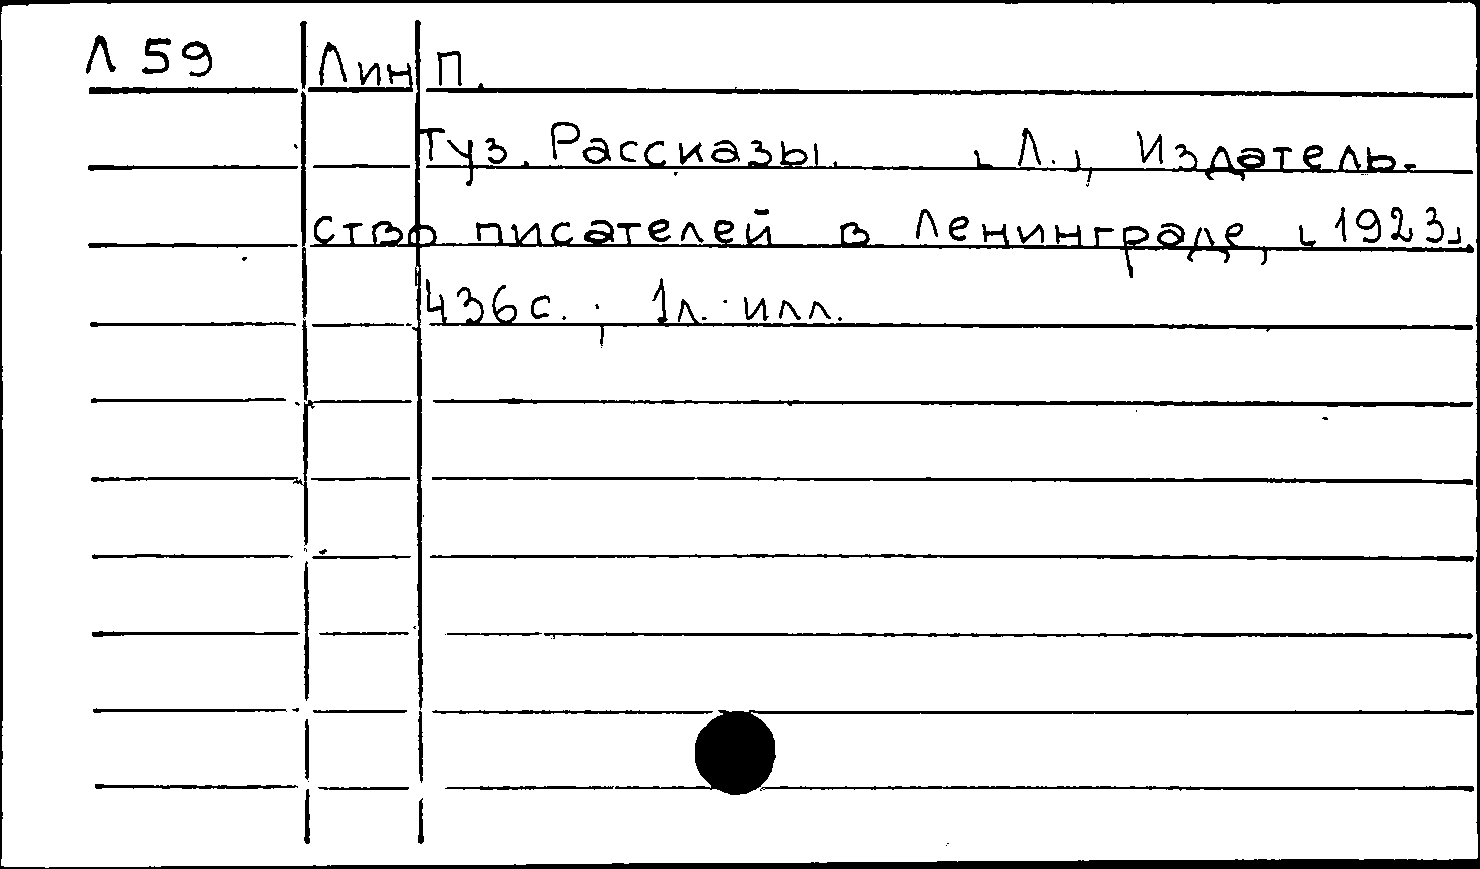 Л 59 Лин П.
Туз. Рассказы. [Л.], Издатель-
ство писателей в Ленинграде, [1923].
436 с.; 1 л. илл.